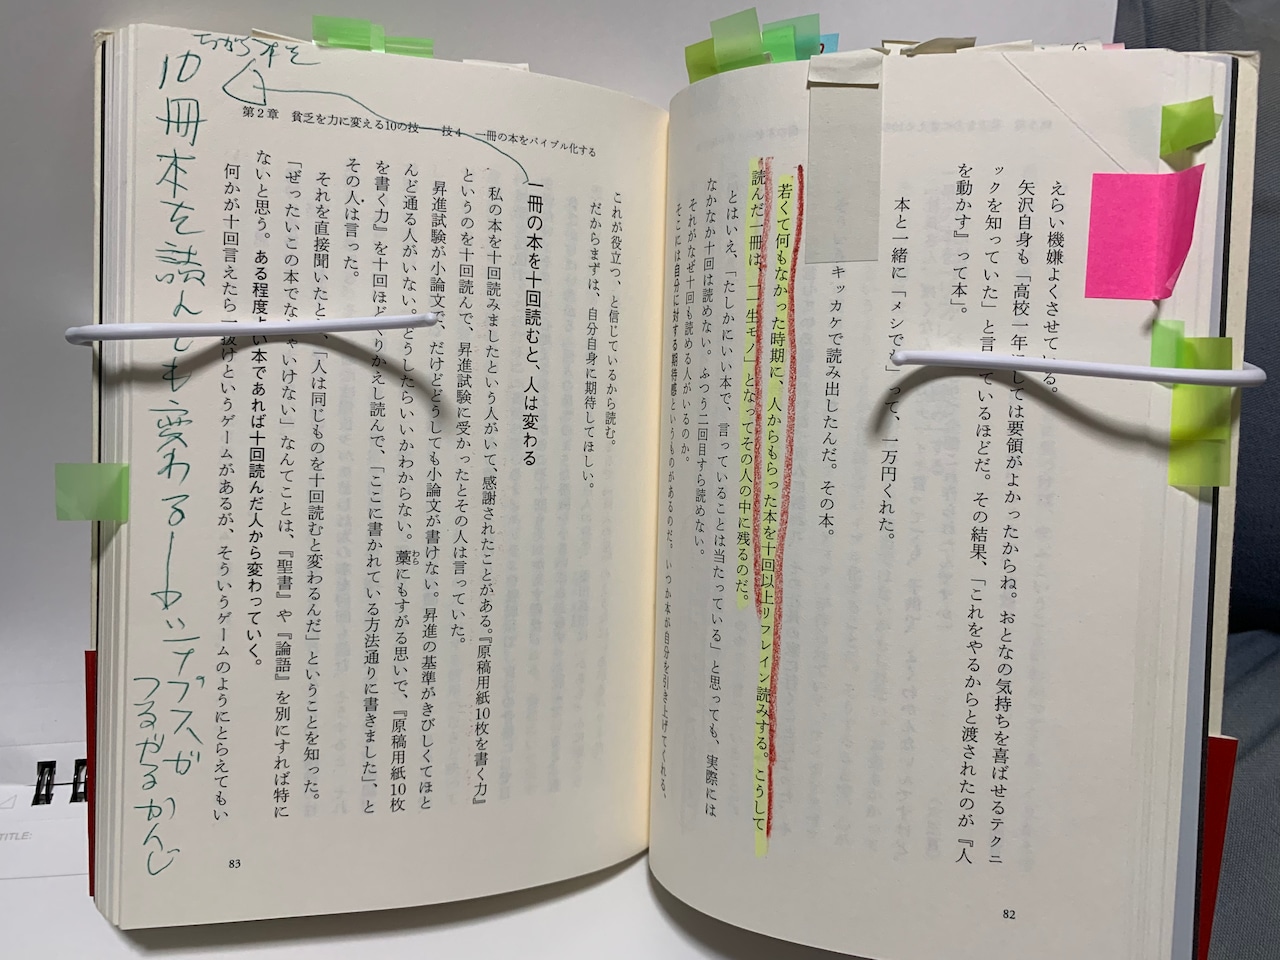 えらい機嫌よくさせている。
矢沢自身も「高校一年にしては要領がよかったからね。おとなの気持ちを喜ばせるテクニ
ックを知っていた」と言っているほどだ。その結果、「これをやるからと渡されたのが『人
を動かす』って本」。
本と一緒に「メシでも」って、一万円くれた。
キッカケで読み出したんだ。その本。
若くて何もなかった時期に、人からもらった本を十回以上リフレイン読みする。こうして
読んだ一冊は、「一生モノ」となってその人の中に残るのだ。
とはいえ、「たしかにいい本で、言っていることは当たっている」と思っても、実際には
なかなか十回は読めない。ふつう二回目すら読めない。
それがなぜ十回も読める人がいるのか。
そこには自分に対する期待感というものがあるのだ。いつか本が自分を引き上げてくれる、
82
第2章 貧乏を力に変える10の技――技4 一冊の本をバイブル化する
これが役立つ、と信じているから読む。
だからまずは、自分自身に期待してほしい。
一冊の本を十回読むと、人は変わる
私の本を十回読みましたという人がいて、感謝されたことがある。『原稿用紙10枚を書く力』
というのを十回読んで、昇進試験に受かったとその人は言っていた。
昇進試験が小論文で、だけどどうしても小論文が書けない。昇進の基準がきびしくてほと
んど通る人がいない。どうしたらいいかわからない。藁にもすがる思いで、『原稿用紙10枚
わら
を書く力』を十回ほどくりかえし読んで、「ここに書かれている方法通りに書きました」、と
その人は言った。
それを直接聞いたとき、「人は同じものを十回読むと変わるんだ」ということを知った。
「ぜったいこの本でなきゃいけない」なんてことは、『聖書』や『論語』を別にすれば特に
ないと思う。ある程度よい本であれば十回読んだ人から変わっていく。
何かが十回言えたら一抜けというゲームがあるが、そういうゲームのようにとらえてもい
83
ちがう本を
10冊本を読んでも変わる
シナプスが
つるがるかんじ
TITLE: